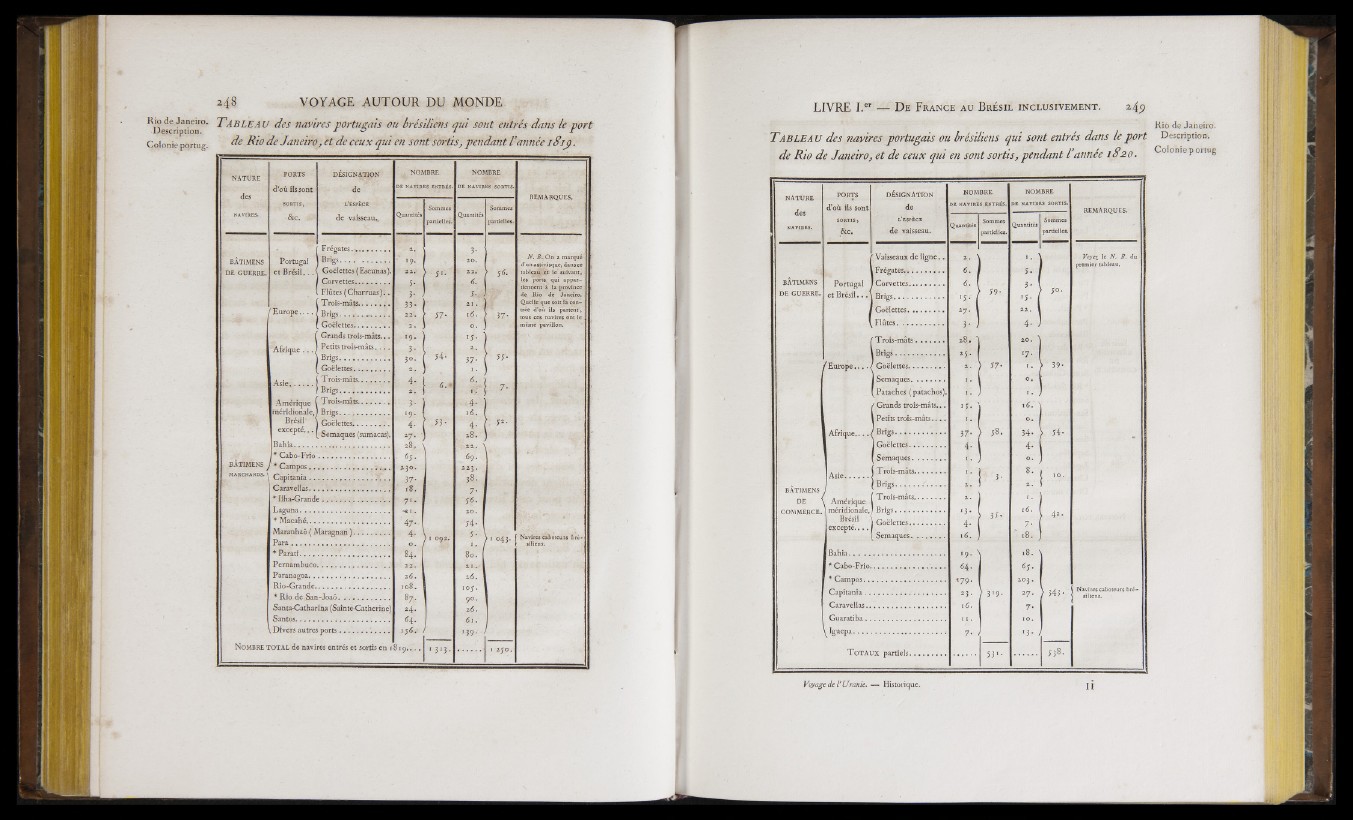 248 VOYAGE AUTOUR DU MONDE.
Rio de Janeiro.
Description.
Colonie portug.
TABLEAU des navires portugais ou brésiliens qui sont entrés dans le port
de Rio de Janeiro, et de ceux qui en sont sortis, pendant l'année 1819.
NATURE des NAVIRES.
PORTS d'où ils sont SORTIS, &c.
DÉSIGNATION de L'ESPÈCE de vaisseau.
NOMBRE DE NAVIRES ENTRÉS.
NOMBRE DE NAVIRES SORTIS.
REMARQUES.
Quantités Sommes partielles. Quantités Sommes partielles.
BÂTIMENS DE GUERRE.
Portugal et Brésil...
Frégates.......... 2. 3.
Brigs.......... 19. 20.
Goëlettes (Escunas). 22. 51. 22. 56.
Corvettes.......... 5. 6.
Flûtes (Charruas).. 3. 5.
N. B. On a marqué
d'un astérisque, dans ce
tableau et le suivant,
les ports qui appar-
tiennent à la province
de Rio de Janeiro.
Quelle que soit la con-
trée d'où ils partent,
tous ces navires ont le
même pavillon.
BÂTIMENS MARCHANDS.
Europe....
Trois-mâts........ 33. 21.
Brigs............ 22. 57. 16. 37.
Goëlettes......... 2. 0.
Afrique...
Grands trois-mâts... 19. 15.
Petits trois-mâts.... 3. 2.
Brigs............ 30. 54. 37. 55.
Goëlettes......... 2. 1.
Asie......
Trois-mâts........ 4. 6. 6. 7.
Brigs............ 2. 1.
Amérique méridionale, Brésil excepté...
Trois-mâts........ 3. 4.
Brigs............ 19. 16.
Goëlettes......... 4. 53. 4. 52.
Semaques (sumacas). 27. 28.
Bahia.................. 28. 22.
* Cabo-Frio.................. 65. 69.
* Campos.................. 230. 223.
Capitania.................. 37. 38.
Caravellas.................. 18. 7.
* Ilha-Grande.................. 71. 56.
Laguna.................. 41. 20.
* Macahé.................. 47. 54.
Maranhaõ (Maragnan)......... 4. 5.
Para.................. 0. 1 092. 1. 1 043. Navires caboteurs bré-
siliens.
* Parati.................. 84. 80.
Pernambuco.................. 22. 21.
Paranagoa.................. 26. 26.
Rio-Grande.................. 108. 105.
* Rio de San-Joaõ............. 87. 90.
Santa-Catharina (Sainte-Catherine) 24. 26.
Santos.................. 64. 61.
Divers outres ports............ 136. 139.
NOMBRE TOTAL de navires entrés et sortis en 1819.... 1 313. ...... 1 250.
LIVRE I.er — DE FRANCE AU BRÉSIL INCLUSIVEMENT. 249
Rio de Janeiro.
Description.
Colonie portug
TABLEAU des navires portugais ou brésiliens qui sont entrés dans le port
de Rio de Janeiro, et de ceux qui en sont sortis, pendant l'année 1820.
NATURE des NAVIRES.
PORTS d'où ils sont SORTIS, &c.
DÉSIGNATION de L'ESPÈCE de vaisseau.
NOMBRE DE NAVIRES ENTRÉS.
NOMBRE DE NAVIRES SORTIS.
REMARQUES.
Quantités Sommes partielles. Quantités Sommes partielles.
BÂTIMENS DE GUERRE.
Portugal et Brésil...
Vaisseaux de ligne.. 2. 1.
Frégates.......... 6. 5.
Corvettes......... 6. 59. 3. 50.
Brigs............ 15. 15.
Goëlettes......... 27. 22.
Flûtes............ 3. 4.
Voyez le N. B. du
premier tableau.
BÂTIMENS DE COMMERCE.
Europe....
Trois-mâts........ 28. 20.
Brigs............ 25. 17.
Goëlettes......... 2. 57. 1. 39.
Semaques......... 1. 0.
Pataches (patachos). 1. 1.
Afrique....
Grands trois-mâts... 15. 16.
Petits trois-mâts.... 1. 0.
Brigs............ 37. 58. 34. 54.
Goëlettes......... 4. 4.
Semaques......... 1. 0.
Asie......
Trois-mâts........ 1. 3. 8. 10.
Brigs............ 2. 2.
Amérique méridionale, Brésil excepté....
Trois-mâts........ 2. 1.
Brigs............ 13. 35. 16. 42.
Goëlettes......... 4. 7.
Semaques......... 16. 18.
Bahia.................. 19. 18.
* Cabo-Frio.................. 64. 65.
* Campos.................. 179. 203.
Capitania.................. 23. 319. 27. 343. Navires caboteurs bré-
siliens.
Caravellas.................. 16. 7.
Guaratiba.................. 11. 10.
Iguapa.................. 7. 13.
TOTAUX partiels......... ...... 531. ...... 538.
Voyage de l'Uranie. — Historique. Ii